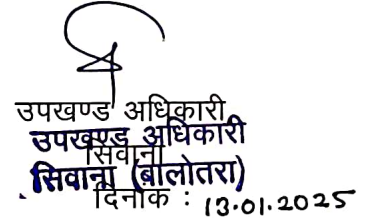 उपखण्ड अधिकारी
उपखण्ड अधिकारी
सिवाना
सिवाना (बालोतरा)
दिनांक : 13.01.2025